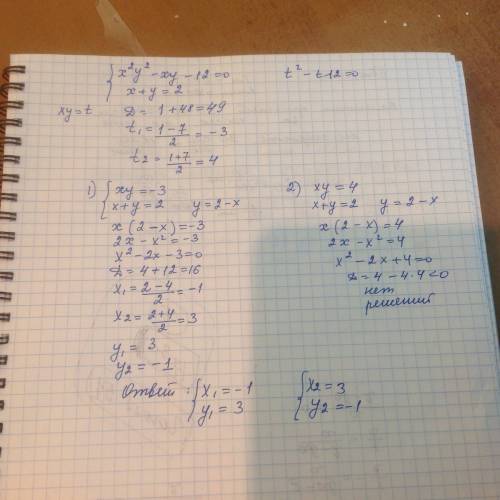 { x²y² - xy - 12 = 0
x + y = 2
t² - t - 12 = 0
xy = t
D = 1 + 48 = 49
t₁ = (1 - 7)/2 = -3
t₂ = (1 + 7)/2 = 4
1) { xy = -3
x + y = 2 y = 2 - x
x(2 - x) = -3
2x - x² = -3
x² - 2x - 3 = 0
D = 4 + 12 = 16
x₁ = (2 - 4)/2 = -1
x₂ = (2 + 4)/2 = 3
y₁ = 3
y₂ = -1
2) xy = 4
x + y = 2 y = 2 - x
x(2 - x) = 4
2x - x² = 4
x² - 2x + 4 = 0
D = 4 - 4·4 < 0
нет
решений
Ответ: { x₁ = -1
y₁ = 3
{ x₂ = 3
y₂ = -1